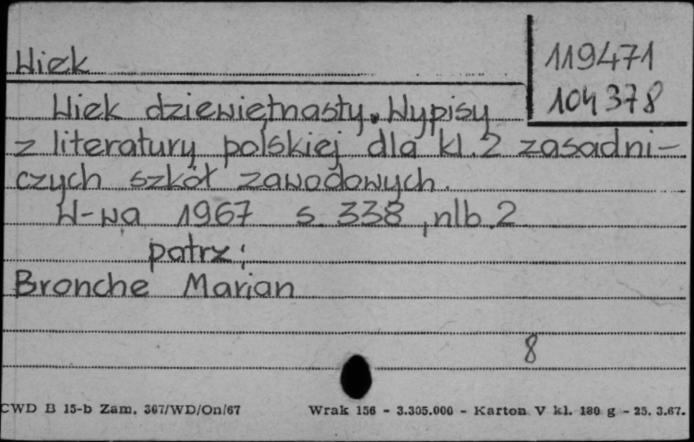 Wiek
119471
104378
Wiek dziewiętnasty. Wypisy
z literatury polskiej dla kl. 2 zasadni-
czych szkół zawodowych.
W-wa 1967 s. 338, nlb. 2
patrz:
Bronche Marian
8
CWD B 15-b Zam. 367/WD/On/67 Wrak 156 - 3.305.000 - Karton V kl. 180 g - 25. 3.67.